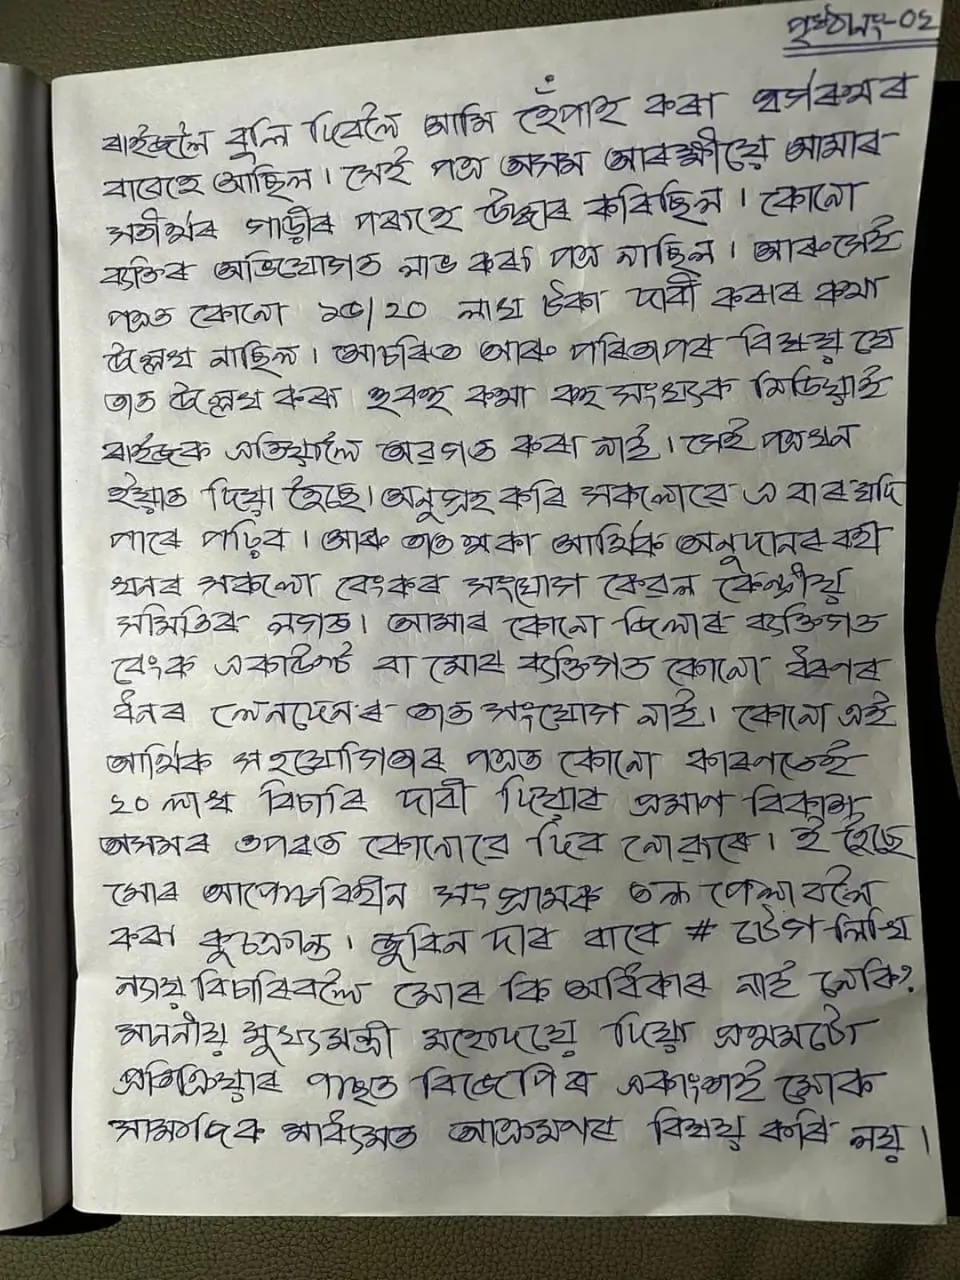 পৃষ্ঠা নং-০২
ৰাইজলৈ বুলি দিবলৈ আমি হেঁপাহ কৰা
বাবেহে আছিল। সেই পত্ৰ অসম আৰক্ষীয়ে আমাৰ
সতীৰ্থৰ গাড়ীৰ পৰাহে উদ্ধাৰ কৰিছিল। কোনো
ব্যক্তিৰ অভিযোগত লাভ কৰা পত্ৰ নাছিল। আৰু সেই
পত্ৰত কোনো ১৫/২০ লাখ টকা দাবী কৰাৰ কথা
উল্লেখ নাছিল। আচৰিত আৰু পৰিতাপৰ বিষয় যে
তাত উল্লেখ কৰা হুবহু কথা বহু সংখ্যক মিডিয়াই
ৰাইজক এতিয়ালৈ অৱগত কৰা নাই। সেই পত্ৰখন
ইয়াত দিয়া হৈছে। অনুগ্ৰহ কৰি সকলোৱে এবাৰ যদি
পাৰে পঢ়িব। আৰু তাত থকা আৰ্থিক অনুদানৰ বহী
খনৰ সকলো বেংকৰ সংযোগ কেৱল কেন্দ্ৰীয়
সমিতিৰ লগত। আমাৰ কোনো জিলাৰ ব্যক্তিগত
বেংক একাউন্ট বা মোৰ ব্যক্তিগত কোনো ধৰণৰ
ধনৰ লেনদেনৰ তাত সংযোগ নাই। কোনো এই
আৰ্থিক সহযোগিতাৰ পত্ৰত কোনো কাৰণতেই
২০ লাখ বিচাৰি দাবী দিয়াৰ প্ৰমাণ বিকাশ
অসমৰ ওপৰত কোনোৱে দিব নোৱাৰে। ই হৈছে
মোৰ আপোচবিহীন সংগ্ৰামক তল পেলাবলৈ
কৰা কুচক্ৰান্ত। জুবিন দাৰ বাবে # টেগ লিখি
ন্যায় বিচাৰিবলৈ মোৰ কি অধিকাৰ নাই নেকি?
মাননীয় মুখ্যমন্ত্ৰী মহোদয়ে দিয়া প্ৰথমটো
প্ৰতিক্ৰিয়াৰ পাছত বিজেপিৰ একাংশই মোক
সামাজিক মাধ্যমত আক্ৰমণৰ বিষয় কৰি লয়।